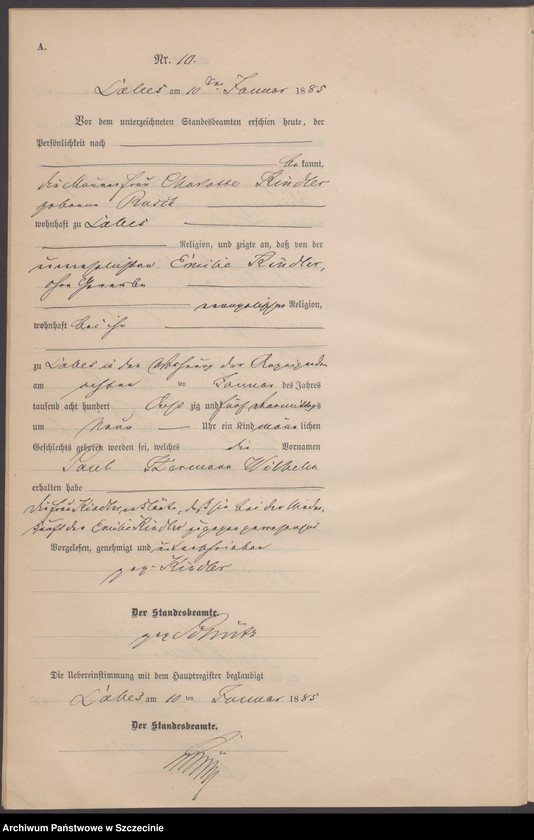 A.
Nr. 10.
Labes am 10ten Januar 1885
Vor dem unterzeichneten Standesbeamten erschien heute, der
Persönlichkeit nach
bekannt,
die Maurerfrau Charlotte Kindler
geborene Rasch
wohnhaft zu Labes
Religion, und zeigte an, daß von der
unverehelichten Emilie Kindler,
ohne Gewerbe
evangelischer Religion,
wohnhaft bei ihr
zu Labes in der Wohnung der Anzeigenden
am achten ten Januar des Jahres
tausend acht hundert achtzig und fünf Vormittags
um neun Uhr ein Kind männlichen
Geschlechts geboren worden sei, welches die Vornamen
Karl Hermann Wilhelm
erhalten habe
die Frau Kindler erklärte, daß sie bei der Nieder-
kunft der Emilie Kindler zugegen gewesen sei
Vorgelesen, genehmigt und unterschrieben
gez. Kindler
Der Standesbeamte.
gez.
Die Uebereinstimmung mit dem Hauptregister beglaubigt
Labes am 10 ten Januar 1885
Der Standesbeamte.
Archiwum Państwowe w Szczecinie